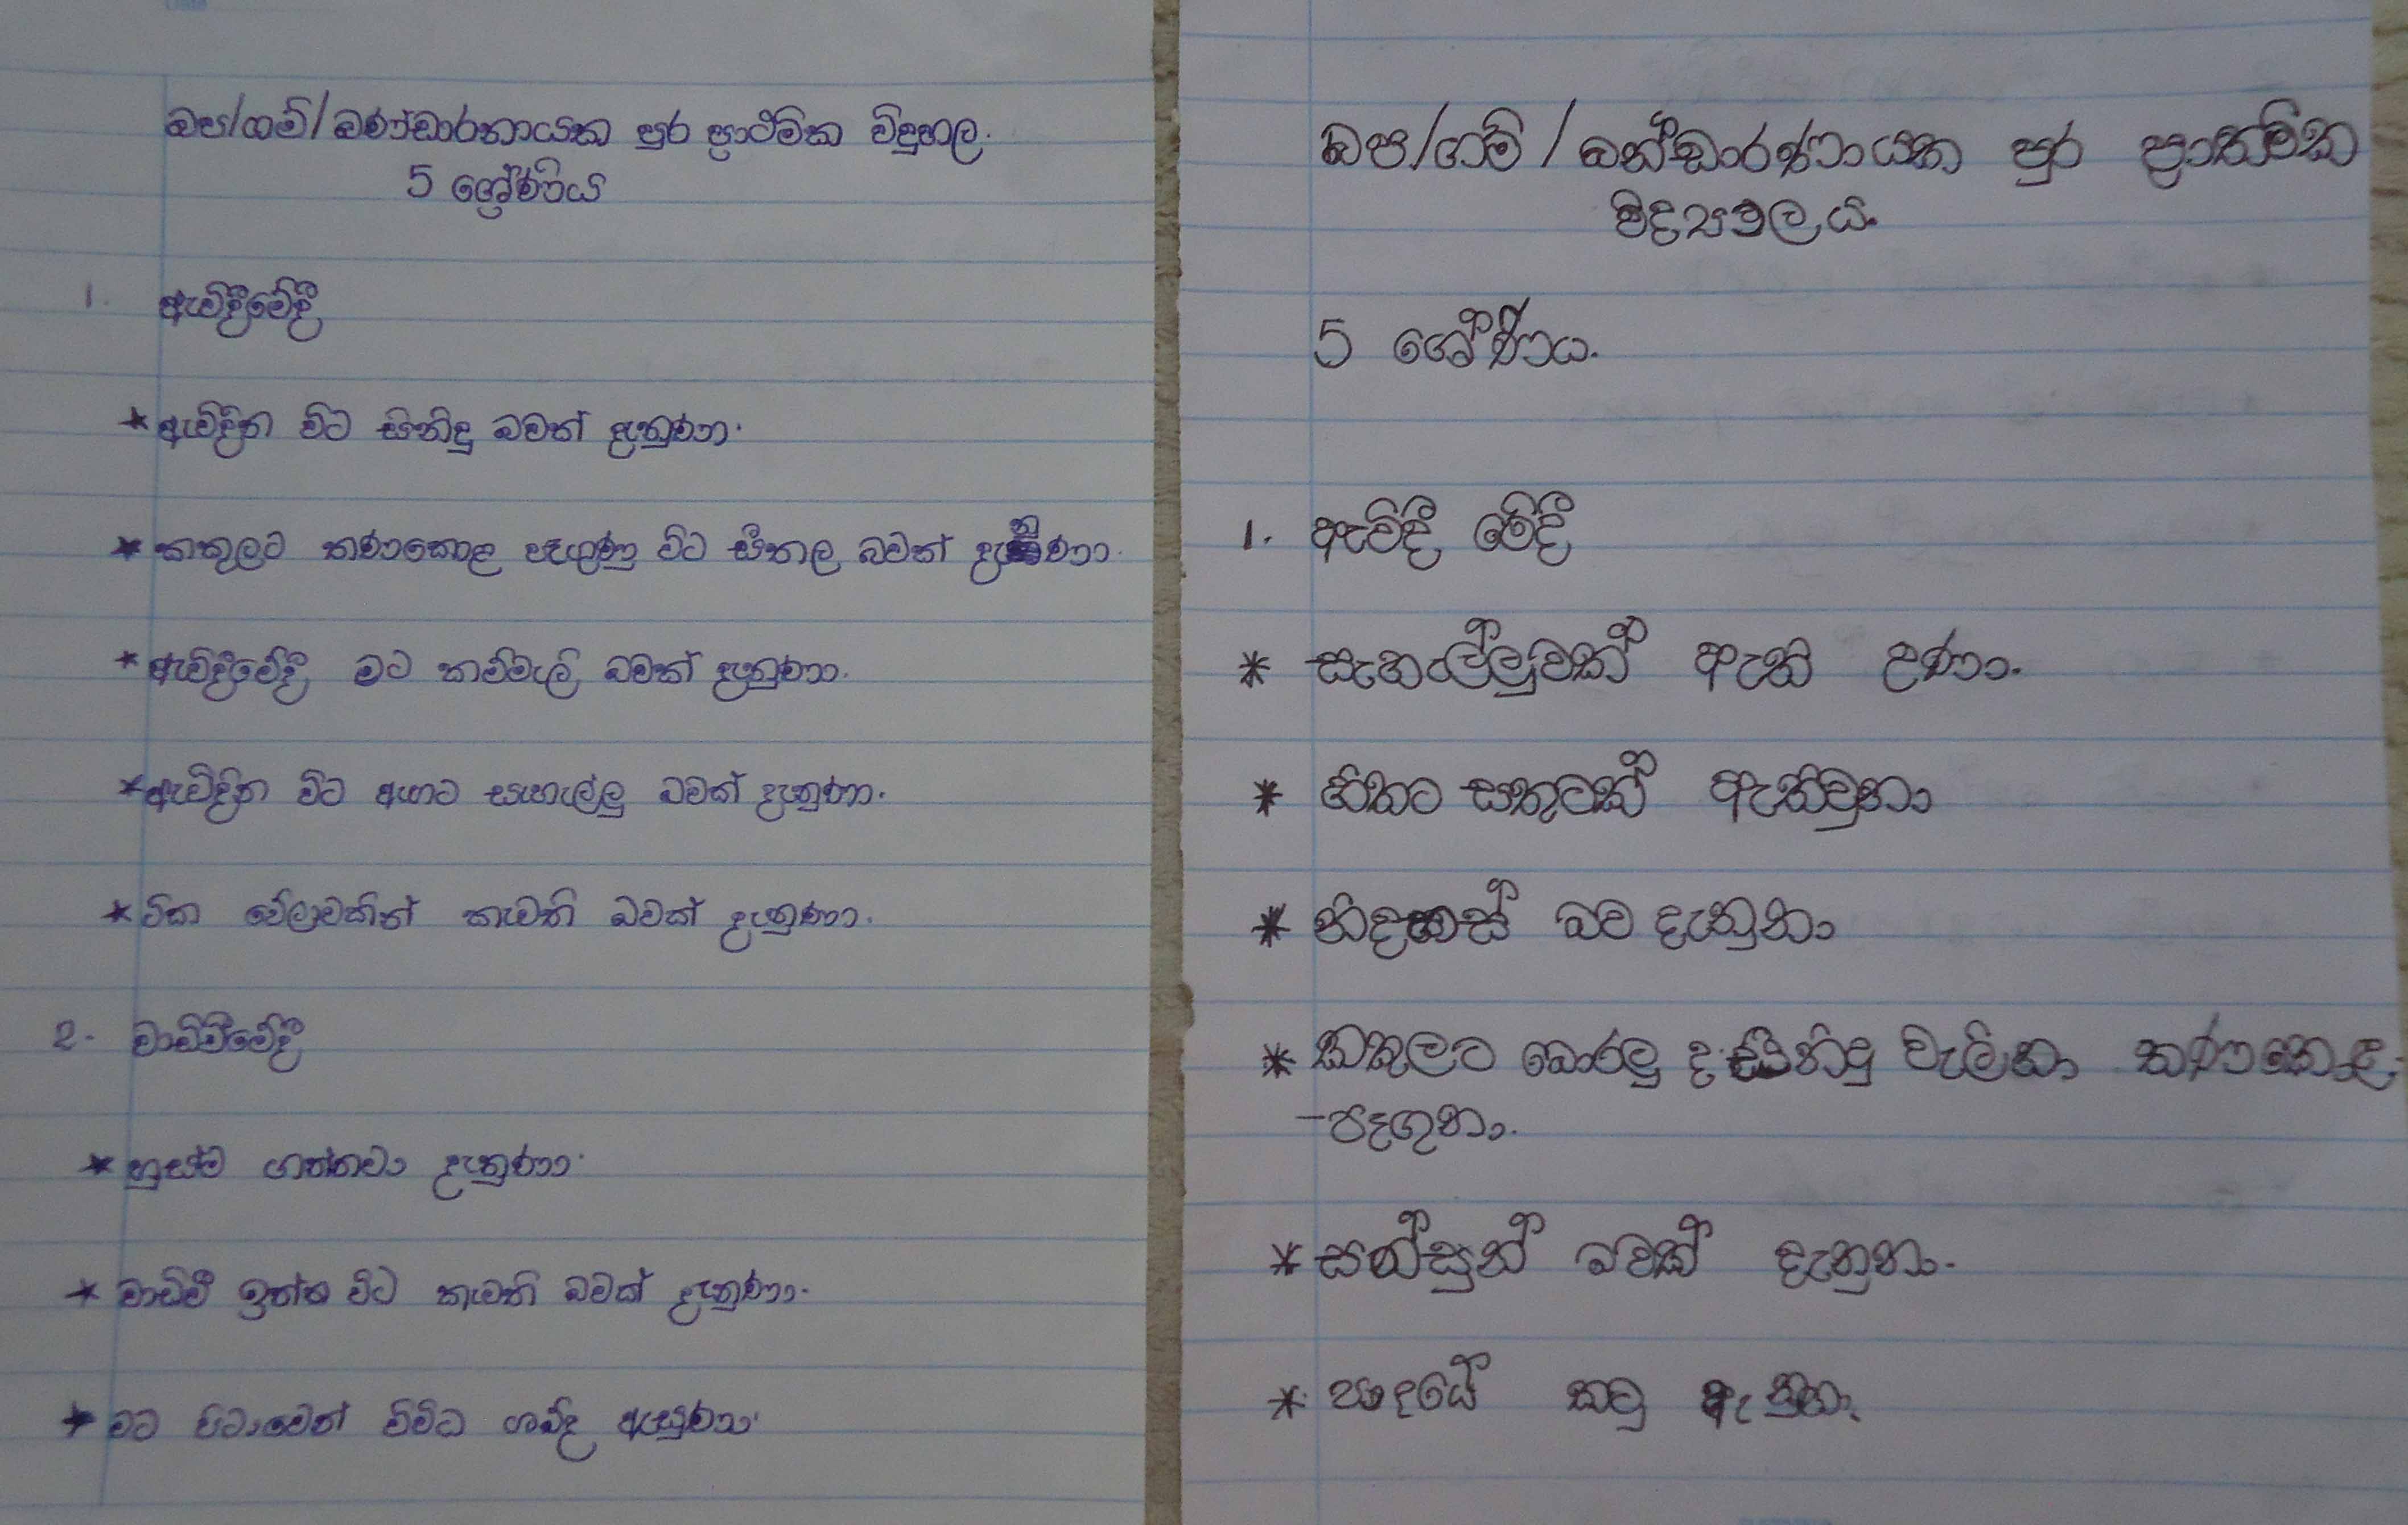 බප/ගම්/බණ්ඩාරනායක පුර ප්‍රාථමික විදුහල.
5 ශ්‍රේණිය
1. ඇවිදීමේදී
* ඇවිදින විට සිනිඳු බවක් දැනුණා.
* කකුලට තණකොළ පෑගුණු විට සීතල බවක් දැනුණා.
* ඇවිදීමේදී මට කම්මැලි බවක් දැනුණා.
* ඇවිදින විට ඇඟට සැහැල්ලු බවක් දැනුණා.
* ටික වේලාවකින් කැමති බවක් දැනුණා.
2. වාඩිවීමේදී
* හුස්ම ගන්නවා දැනුණා.
* වාඩිවී ඉන්න විට කැමති බවක් දැනුණා.
* මට පිටාවෙන් විවිධ ශබ්ද ඇසුණා.
බප/ගම්/බන්ඩාරණායක පුර ප්‍රාත්මික
විද්‍යාලය.
5 ශ්‍රේණිය.
1. ඇවිදී මේදී
* සැහැල්ලුවක් ඇති උණා.
* හිතට සතුටක් ඇතිවුනා
* නිදහස් බව දැනුනා
* කකුලට බොරලු ද සිනිඳු වැලිකා තණකොළ.
-පෑගුනා.
* සන්සුන් බවක් දැනුනා.
* පාදයේ කටු ඇනුනා.